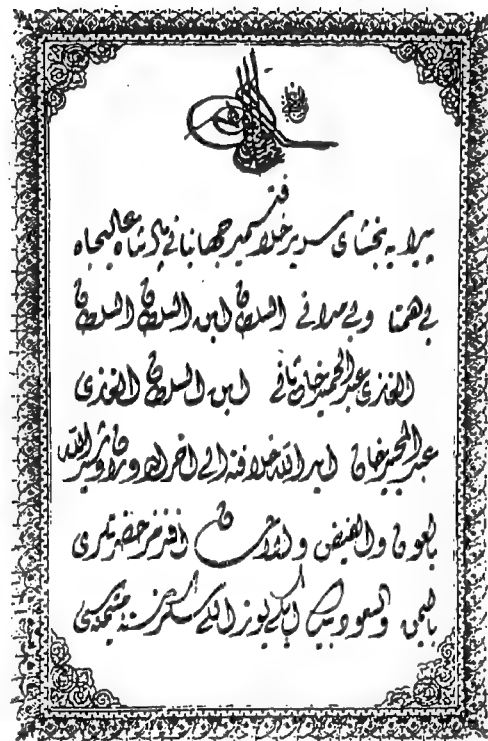 پیرایه بخشای سریر خلافتسمیر جهانبانی پادشاه عالیجاه
بی همتا و بی مدانی السلطان ابن السلطان السلطان
الغازی عبدالحمید خان ثانی ابن السلطان الغازی
عبدالمجید خان اید الله خلافته الی اخر الدوران
بالعون والفیض والاحسان افندمز حضرتلری
بالیمن والسعود بیك ایكی یوز اللی سكز سنه